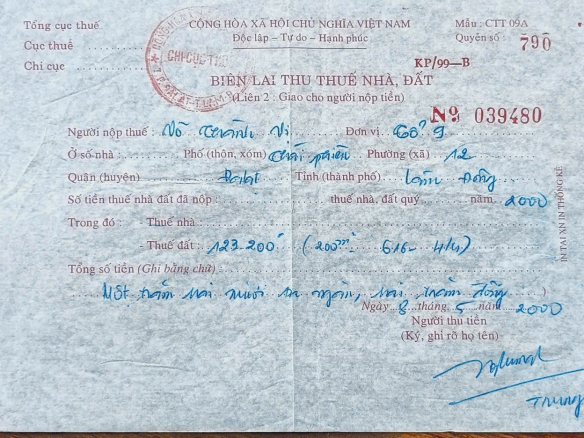 Tổng cục thuế
Cục thuế
Chi cục
CHI CỤC THUẾ
CỘNG HÒA XÃ HỘI CHỦ NGHĨA VIỆT NAM
Độc lập - Tự do - Hạnh phúc
Mẫu: CTT 09A
Quyển số 790
KP/99-B
BIÊN LAI THU THUẾ NHÀ, ĐẤT
(Liên 2: Giao cho người nộp tiền)
Nº 039480
Người nộp thuế: Võ Thành Vi Đơn vị Tổ 9
Ở số nhà: Phố (thôn, xóm) Thái Phiên Phường (xã) 12
Quận (huyện) Đalat Tỉnh (thành phố) Lâm Đồng
Số tiền thuế nhà đất đã nộp thuế nhà, đất quý năm 2000
Trong đó: - Thuế nhà:
- Thuế đất: 123.200đ (200m² 616 - 4/4)
Tổng số tiền (Ghi bằng chữ)
Một trăm hai mươi ba ngàn, hai trăm đồng
Ngày 8 tháng 5 năm 2000
Người thu tiền
(Ký, ghi rõ họ tên)
Trung
IN TẠI XN IN THỐNG KÊ